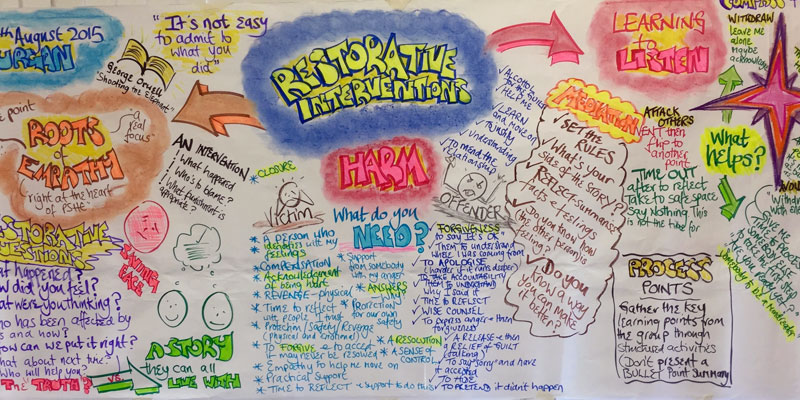 th August 2015
"It's not easy
to admit to
what you
did"
George Orwell
"Shooting the Elephant"
RESTORATIVE
INTERVENTIONS
LEARNING
to
LISTEN
WITHDRAW
Leave me
alone
Maybe
acknowledge
e point
"a
real
focus"
ROOTS
of
EMPATHY
right at the heart
of PSHE
AN INTERVENTION
What happened
Who's to blame?
What punishment is
appropriate?
HARM
What do you
NEED?
* CLOSURE
Victim
* A person who
identifies with my
feelings
* COMPENSATION
* Acknowledgement
of being hurt
* REVENGE - physical
* Time to reflect
with people I trust
* Protection / Safety / Revenge
(physical and emotional)
* To FORGIVE or to accept
it may never be resolved
* Empathy to help me move on
* Practical Support
* TIME to REFLECT + support to do this
* Support
from somebody
with my anger
* ANSWERS
* Protection
for our own
safety
* A RESOLUTION
* A SENSE OF
CONTROL
OFFENDER
✓ LEARN
and move on
✓ Understanding
✓ To mend the
relationship
✓ FORGIVENESS
to say It's OK
✓ Them to understand
where I was coming from
✓ TO APOLOGISE
(harder if it runs deeper)
✓ TAKE ACCOUNTABILITY
✓ THEM to UNDERSTAND
why I said it
✓ TIME to REFLECT
✓ WISE COUNSEL
✓ To express anger + then
forgiveness
✓ A RELEASE + then
a RELIEF of GUILT
(talking)
✓ To say "sorry" and have
it accepted
✓ TO HIDE
✓ TO PRETEND it didn't happen
MEDIATION
✓ SET the
RULES
✓ What's your
side of the story?
✓ REFLECT Summarise
facts & feelings
✓ Do you know how
the other person is
feeling?
✓ Do you
know a way
you can make
it better?
ATTACK
OTHERS
VENT then
flip to
another
point
TIME OUT
after to reflect
Take to safe space
Say Nothing This
is not the time for
What
helps?
PROCESS
POINTS
Gather the key
learning points from
the group through
structured activities
(Don't present a
BULLET Point Summary
RESTORATIVE
QUESTIONS
What happened?
How did you feel?
What were you thinking?
Who has been affected by
this and how?
How can we put it right?
What about next time?
Who will help you?
The TRUTH?
vs.
SAVING
FACE
A STORY
they can all
LIVE WITH